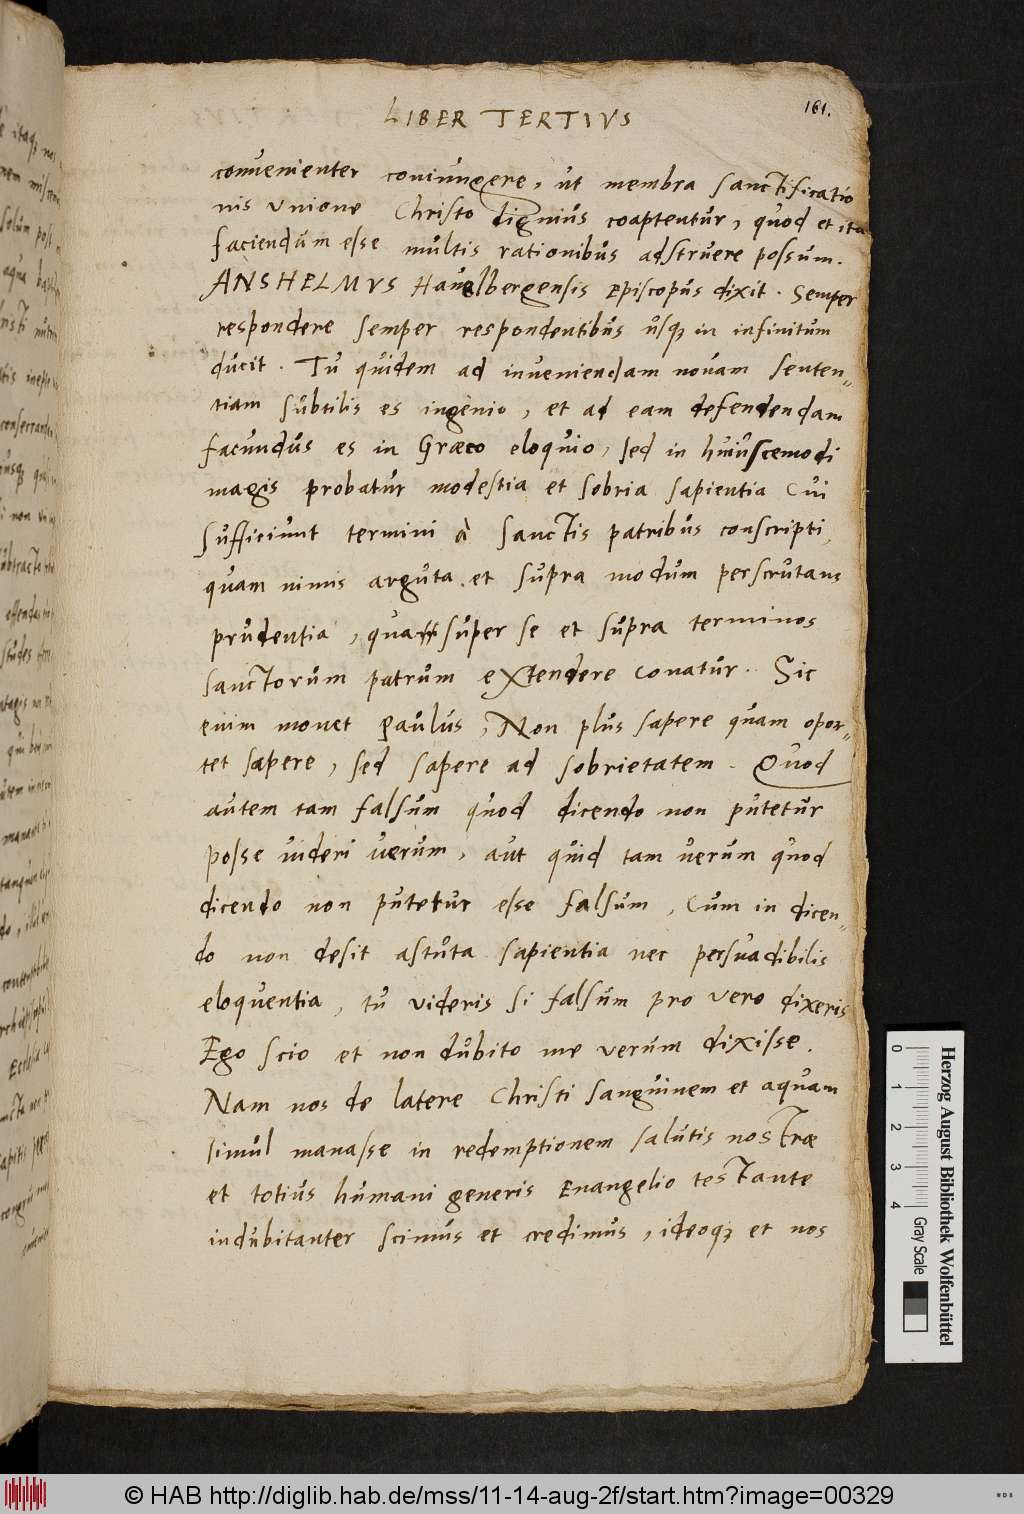 LIBER TERTIVS
161.
convenienter coniungere, ut membra sanctificatio
nis vnione Christo dignius coaptentur, quod et ita
faciendum esse multis rationibus adstruere possum.
ANSHELMVS Havelbergensis Episcopus dixit. Semper
respondere semper respondentibus usq; in infinitum
ducit. Tu quidem ad inveniendam novam senten„
tiam subtilis es ingenio, et ad eam defendendam
facundus es in Græco eloquio, sed in huiuscemodi
magis probatur modestia et sobria sapientia Cui
sufficiunt termini à sanctis patribus conscripti,
quam nimis arguta et supra modum perscrutans
prudentia, quæ super se et supra terminos
sanctorum patrum extendere conatur. Sic
enim monet Paulus, Non plus sapere quam opor„
tet sapere, sed sapere ad sobrietatem. Quod
autem tam falsum quod dicendo non putetur
posse videri verum, aut quid tam verum quod
dicendo non putetur esse falsum, Cum in dicen„
do non desit astuta sapientia nec persuadibilis
eloquentia, tu videris si falsum pro vero dixeris
Ego scio et non dubito me verum dixisse.
Nam nos de latere Christi sanguinem et aquam
simul manasse in redemptionem salutis nostræ
et totius humani generis Evangelio testante
indubitanter scimus et credimus, ideoq; et nos
Herzog August Bibliothek Wolfenbüttel
0 1 2 3 4
Gray Scale
© HAB http://diglib.hab.de/mss/11-14-aug-2f/start.htm?image=00329